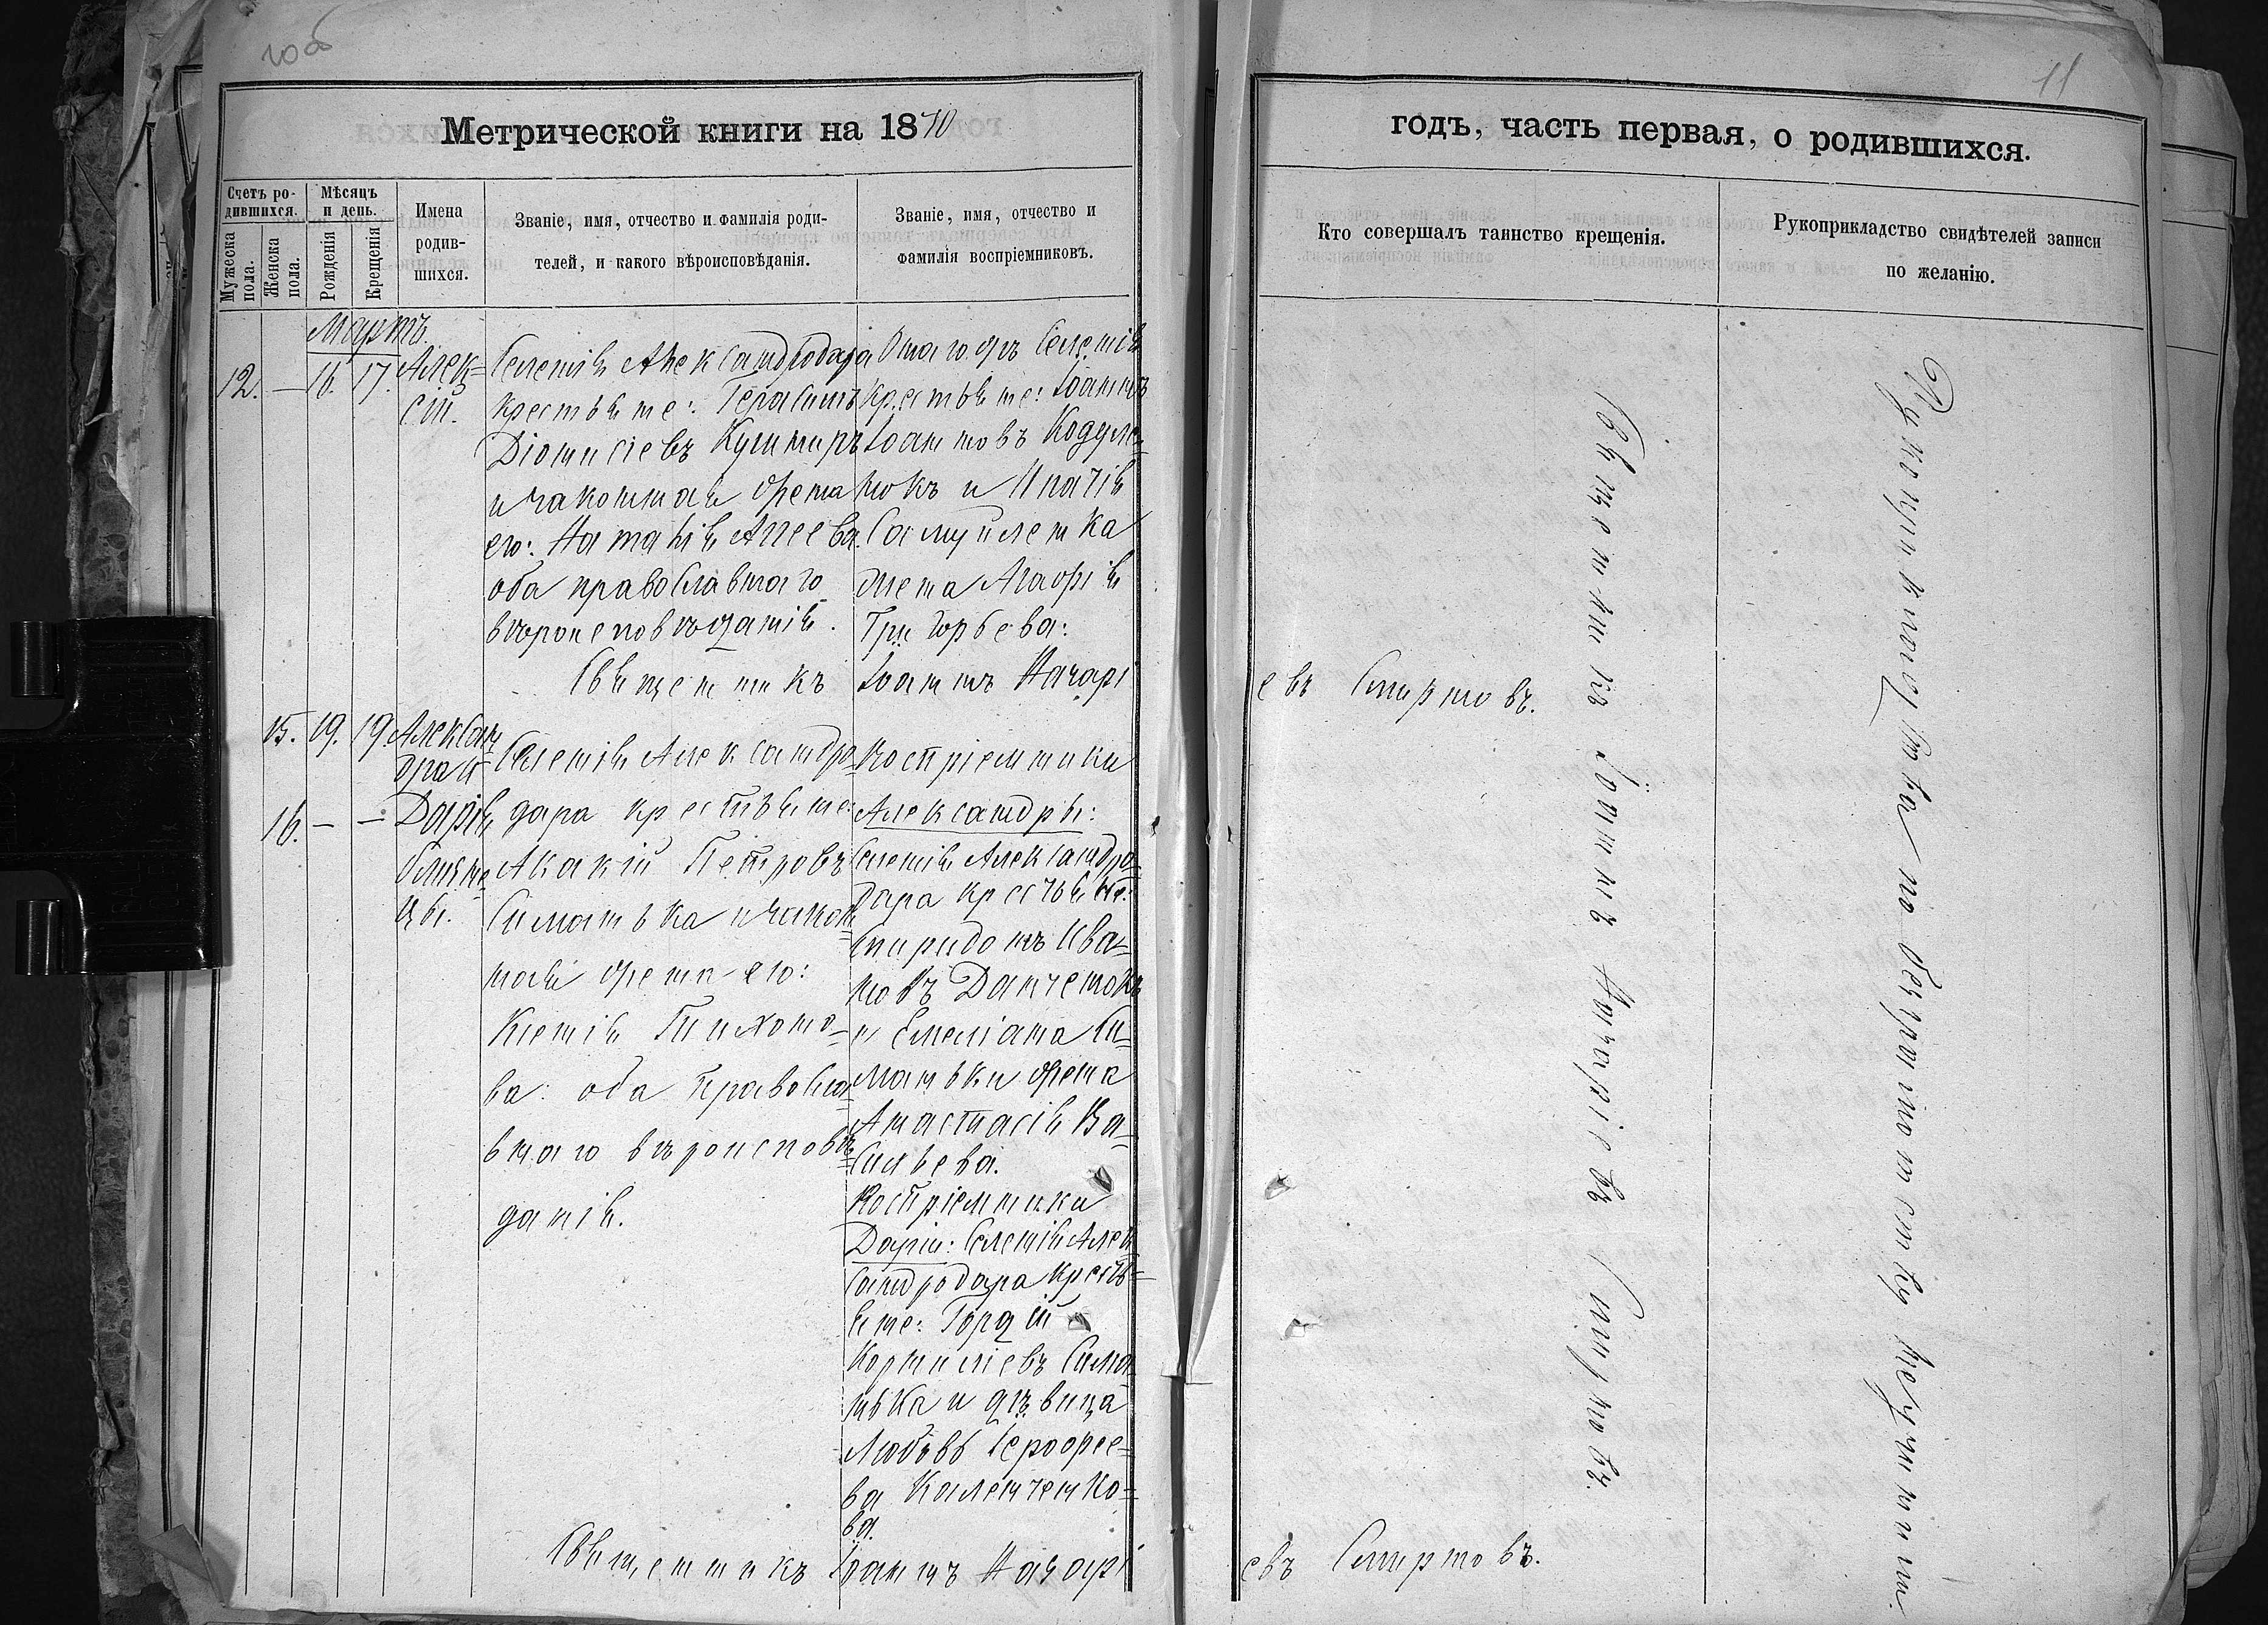 10об
11
Метрической книги на 1870
годъ, часть первая, о родившихся.
Счетъ ро-
дившихся.
Мужеска
пола.
Женска
пола.
Мѣсяцъ
и день.
Рожденія
Крещенія
Имена
родив-
шихся.
Званіе, имя, отчество и фамилія роди-
телей, и какого вѣроисповѣданія.
Званіе, имя, отчество и
фамилія воспріемниковъ.
Кто совершалъ таинство крещенія.
Рукоприкладство свидѣтелей записи
по желанію.
Мартъ.
12. — 16. 17.
Алек-
сій.
Селенія Александродара
крестьяне: Герасимъ
Діонисіевъ Кушниръ
и законная жена
его: Наталія
оба православнаго
вѣроисповѣданія.
Онаго же Селенія
крестьяне: Іоаннъ
Іоанновъ
и Игнатія
Самуйленка
жена Агафія
Григорьева:
Священникъ Іоаннъ Назарі
евъ Смирновъ.
15. 19. 19.
Алексан
дра и
16. — —
Дарія
близне
цы.
Селенія Александро-
дара крестьяне:
Акакій Петровъ
Симанька и закон
ная жена его:
Ксенія Тихоно-
ва: оба Правосла
внаго вѣроисповѣ
данія.
Воспріемники
Александры:
Селенія Александро-
дара крестьяне:
Спиридонъ Ива-
новъ
и Емеліана Си-
маньки жена
Анастасія Ва-
сильева.
Воспріемники
Даріи: Селенія Алек
сандродара кресть-
яне: Гордій
Корниліевъ Сима
нька и дѣвица
Любовь
ва Каленченко-
ва.
Священникъ Іоаннъ Назарі
евъ Смирновъ.
Священникъ Іоаннъ Назаріевъ Смирновъ.